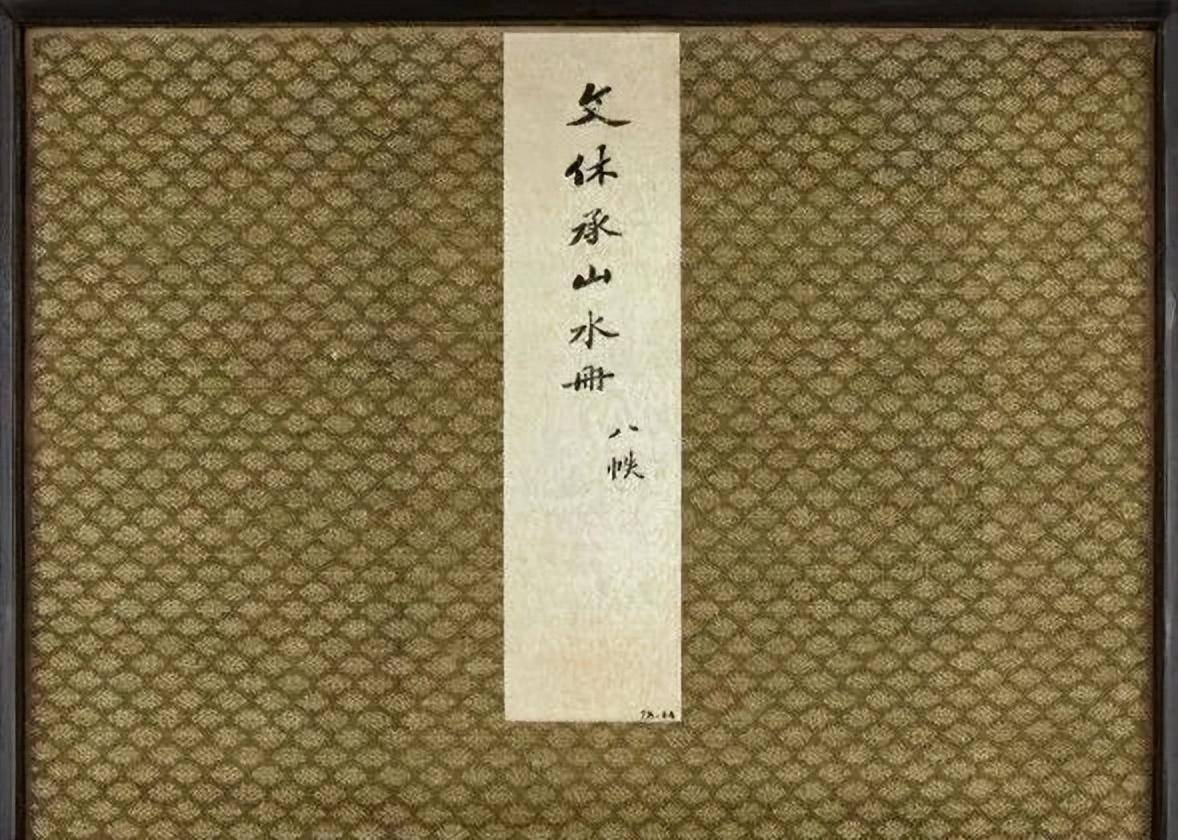 文休承山水冊
八帙